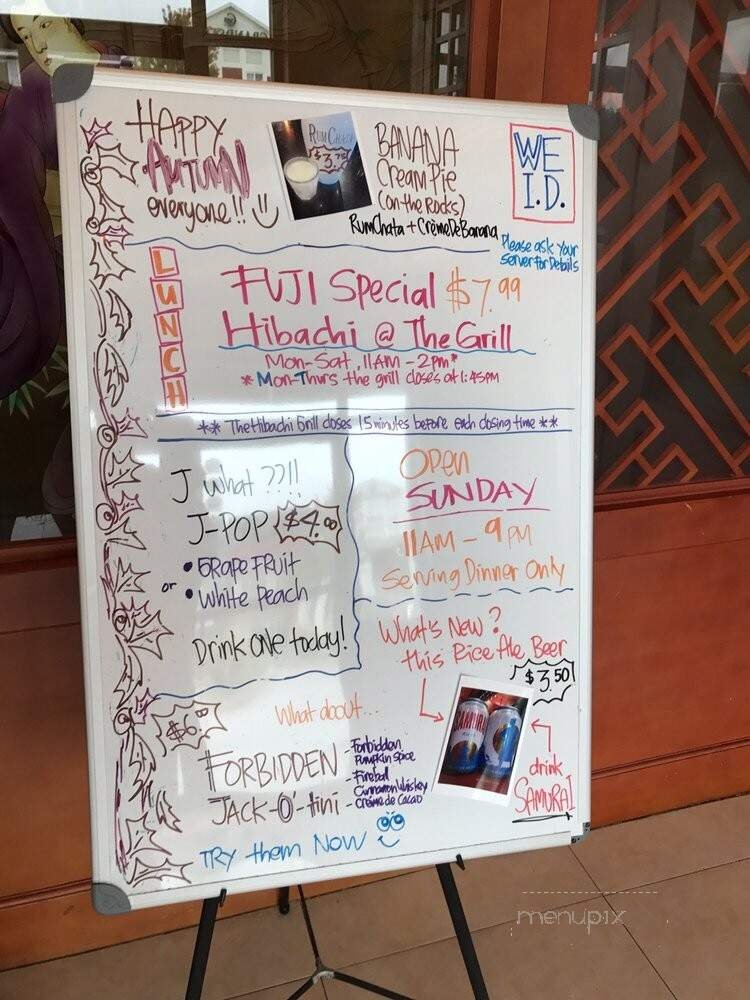 HAPPY
AUTUMN
everyone!!
RUMCHATA
$3.75
BANANA
CREAM PIE
(on the ROCKS)
RumChata + CrèmeDeBanana
WE
I.D.
Please ask Your
server for Details
LUNCH
FUJI Special $7.99
Hibachi @ The Grill
Mon-Sat, 11AM - 2pm*
* Mon-Thurs the grill closes at 1:45PM
** The Hibachi Grill closes 15 minutes before each closing time **
J what ??!!
J-POP $4.00
• GRAPE FRUIT
or • White Peach
Drink ONE today!
OPEN
SUNDAY
11AM - 9PM
Serving Dinner Only
What's New?
this Rice Ale Beer
$3.50
drink
SAMURAI
What about...
$6.00
FORBIDDEN
JACK-O-tini
- Forbidden
Pumpkin Spice
- Fireball
Cinnamon Whiskey
- Crème de Cacao
TRY them NOW
menupix